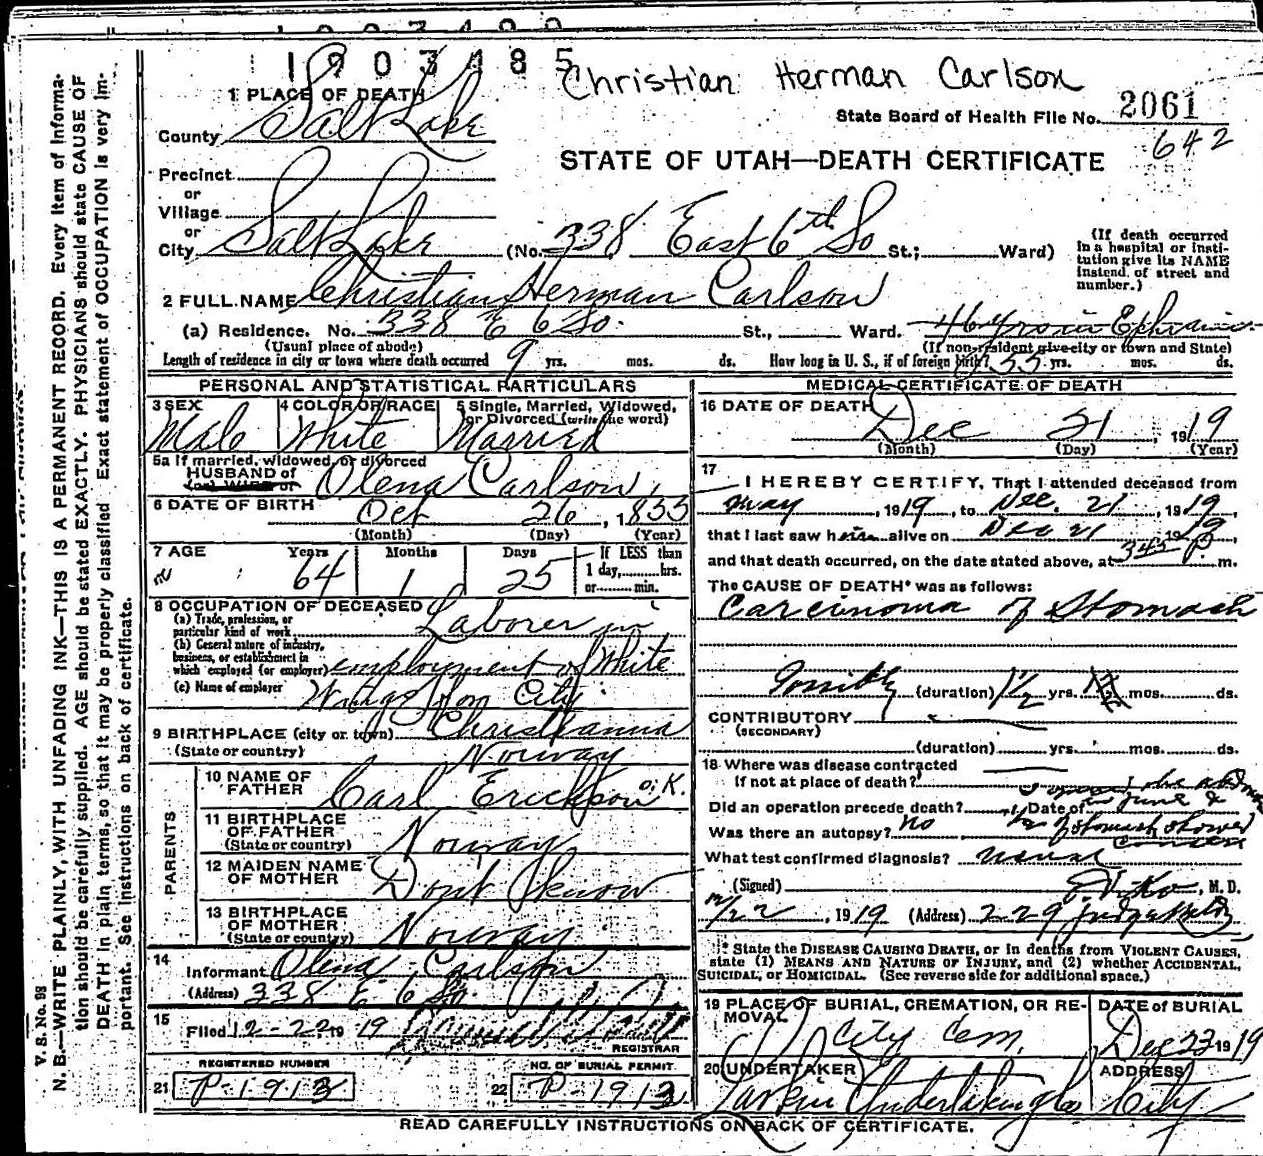 1903485
Christian Herman Carlson
1 PLACE OF DEATH
County Salt Lake
State Board of Health File No. 2061
642
STATE OF UTAH—DEATH CERTIFICATE
Precinct
or
Village
or
City Salt Lake (No. 338 East 6th So St.; Ward)
(If death occurred in a hospital or institution give its NAME instead of street and number.)
2 FULL NAME Christian Herman Carlson
(a) Residence. No. 338 E 6 So. St., Ward. 46 yrs in Ephraim
(Usual place of abode) (If non-resident give city or town and State)
Length of residence in city or town where death occurred 9 yrs. mos. ds. How long in U. S., if of foreign birth? 55 yrs. mos. ds.
PERSONAL AND STATISTICAL PARTICULARS
3 SEX Male
4 COLOR OR RACE White
5 Single, Married, Widowed, or Divorced (write the word) Married
5a If married, widowed, or divorced
HUSBAND of
(or) WIFE of Olena Carlson
6 DATE OF BIRTH Oct 26, 1855
(Month) (Day) (Year)
7 AGE Years 64 Months 1 Days 25 If LESS than 1 day, hrs. or min.
8 OCCUPATION OF DECEASED
(a) Trade, profession, or particular kind of work Laborer in
(b) General nature of industry, business, or establishment in which employed (or employer) employment of White
(c) Name of employer Wings City
9 BIRTHPLACE (city or town) Christianna
(State or country) Norway
PARENTS
10 NAME OF FATHER Carl Erickson O.K.
11 BIRTHPLACE OF FATHER (State or country) Norway
12 MAIDEN NAME OF MOTHER Dont Know
13 BIRTHPLACE OF MOTHER (State or country) Norway
14 Informant Olena Carlson
(Address) 338 E 6 So
15 Filed 12-22 19 19
REGISTRAR
REGISTERED NUMBER
21 P-1913
NO. OF BURIAL PERMIT
22 P-1913
MEDICAL CERTIFICATE OF DEATH
16 DATE OF DEATH Dec 21, 1919
(Month) (Day) (Year)
17 I HEREBY CERTIFY, That I attended deceased from
May, 1919, to Dec. 21, 1919,
that I last saw him alive on Dec 21 1919,
and that death occurred, on the date stated above, at 345 P m.
The CAUSE OF DEATH* was as follows:
Carcinoma of Stomach
(duration) 1 1/2 yrs. mos. ds.
CONTRIBUTORY
(SECONDARY)
(duration) yrs. mos. ds.
18 Where was disease contracted
if not at place of death?
Did an operation precede death? Date of in June &
Was there an autopsy? no of stomach showed
What test confirmed diagnosis? usual cancer
(Signed) M. D.
12/22, 1919 (Address) 229 Judge Bldg
* State the DISEASE CAUSING DEATH, or in deaths from VIOLENT CAUSES, state (1) MEANS AND NATURE OF INJURY, and (2) whether ACCIDENTAL, SUICIDAL, or HOMICIDAL. (See reverse side for additional space.)
19 PLACE OF BURIAL, CREMATION, OR REMOVAL City Cem
DATE of BURIAL Dec 23 1919
20 UNDERTAKER Larkin Undertaking Co
ADDRESS City
READ CAREFULLY INSTRUCTIONS ON BACK OF CERTIFICATE.
V. S. No. 98
N. B.—WRITE PLAINLY, WITH UNFADING INK—THIS IS A PERMANENT RECORD. Every item of information should be carefully supplied. AGE should be stated EXACTLY. PHYSICIANS should state CAUSE OF DEATH in plain terms, so that it may be properly classified. Exact statement of OCCUPATION is very important. See instructions on back of certificate.